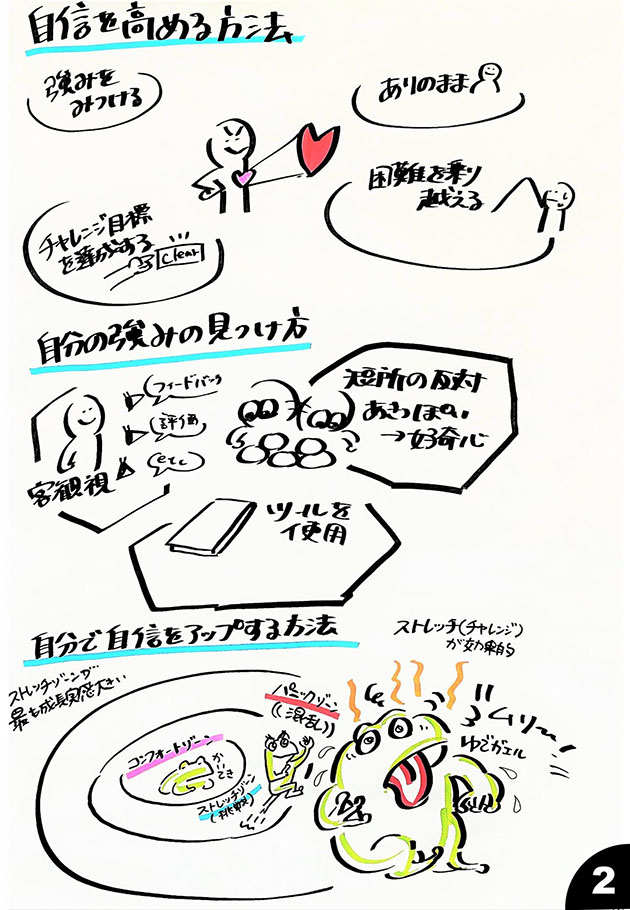 自信を高める方法
強みを
みつける
ありのまま
困難を乗り
越える
チャレンジ目標
を達成する
clear
自分の強みの見つけ方
フィードバック
評価
etc
客観視
短所の反対
あきっぽい
→好奇心
ツールを
使用
自分で自信をアップする方法
ストレッチ(チャレンジ)
が効果的
ストレッチゾーンが
最も成長実感大きい
パニックゾーン
(混乱)
ムリ〜!
ゆでガエル
コンフォートゾーン
かいてき
ストレッチゾーン
(挑戦)
2